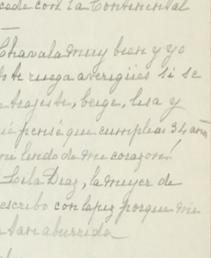 cede con la Continental
Chavala muy bien y yo
te ruega averigües si se
beige, lisa y
pensé que cumplías 34 años
lindo de mi corazón!
Leila Diaz, la mujer de
escribo con lapiz porque me
tan aburrida